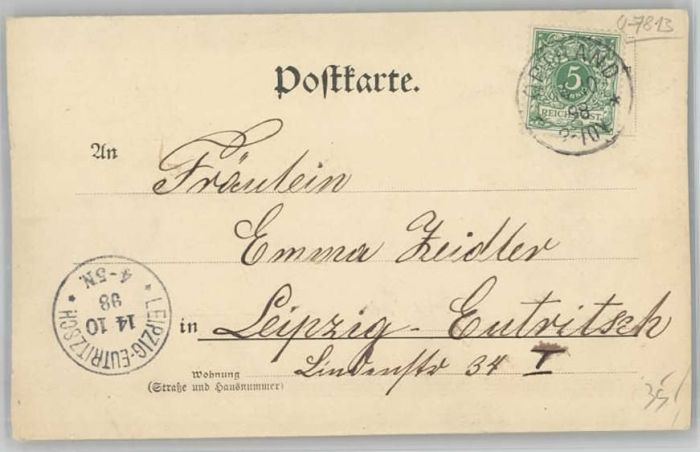 U-7813
Postkarte.
5
REICHSPOST
98
An
Fräulein
Emma Zeidler
in Leipzig-Eutritsch
Lindenstr 34 I
Wohnung
(Straße und Hausnummer)
LEIPZIG-EUTRITZSCH
14 10
98
4-5N.